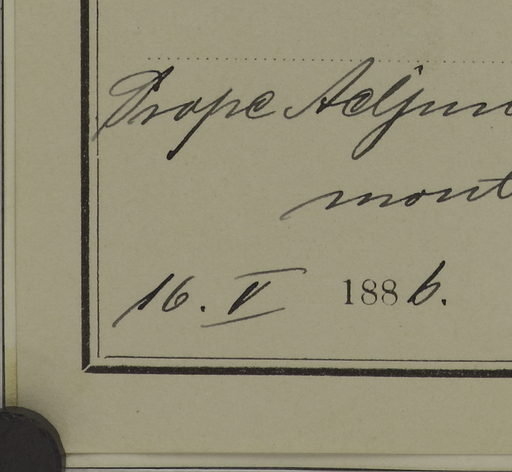 Prope Adjun
mont
16. V 1886.